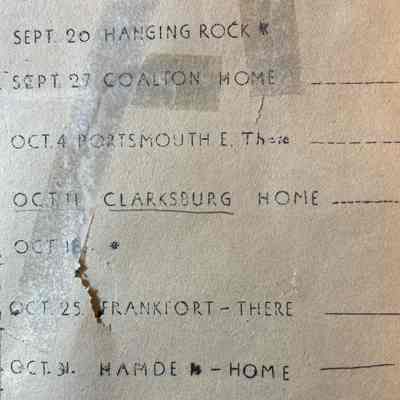 SEPT. 20 HANGING ROCK *
SEPT. 27 COALTON HOME
OCT. 4 PORTSMOUTH E. There
OCT 11 CLARKSBURG HOME
OCT 18. *
OCT. 25. FRANKFORT - THERE
OCT. 31. HAMDEN - HOME